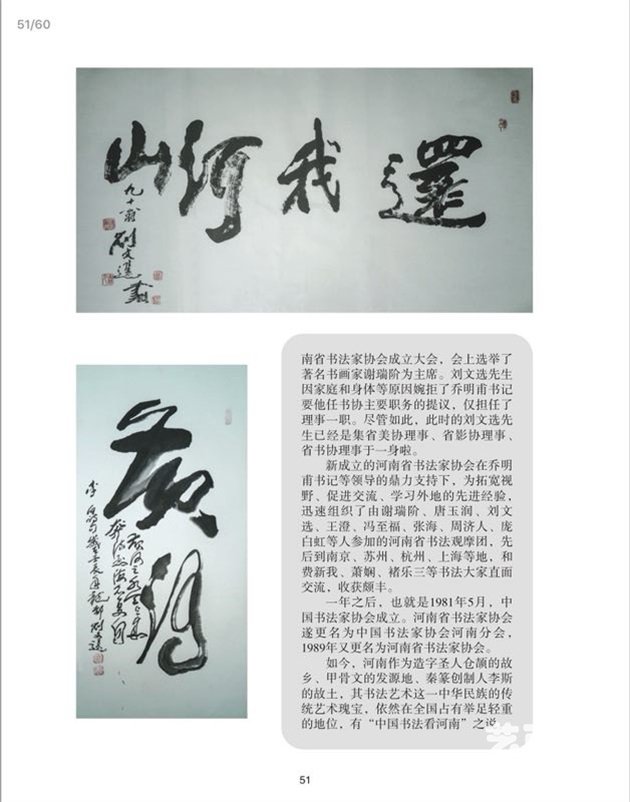 51/60
還我河山
九十翁
劉文選書
黄河
黄河之水天上来
奔流到海不复回
南省书法家协会成立大会，会上选举了
著名书画家谢瑞阶为主席。刘文选先生
因家庭和身体等原因婉拒了乔明甫书记
要他任书协主要职务的提议，仅担任了
理事一职。尽管如此，此时的刘文选先
生已经是集省美协理事、省影协理事、
省书协理事于一身啦。
新成立的河南省书法家协会在乔明
甫书记等领导的鼎力支持下，为拓宽视
野、促进交流、学习外地的先进经验，
迅速组织了由谢瑞阶、唐玉润、刘文
选、王澄、冯至福、张海、周济人、庞
白虹等人参加的河南省书法观摩团，先
后到南京、苏州、杭州、上海等地，和
费新我、萧娴、褚乐三等书法大家直面
交流，收获颇丰。
一年之后，也就是1981年5月，中
国书法家协会成立。河南省书法家协会
遂更名为中国书法家协会河南分会，
1989年又更名为河南省书法家协会。
如今，河南作为造字圣人仓颉的故
乡、甲骨文的发源地、秦篆创制人李斯
的故土，其书法艺术这一中华民族的传
统艺术瑰宝，依然在全国占有举足轻重
的地位，有“中国书法看河南”之说。
51